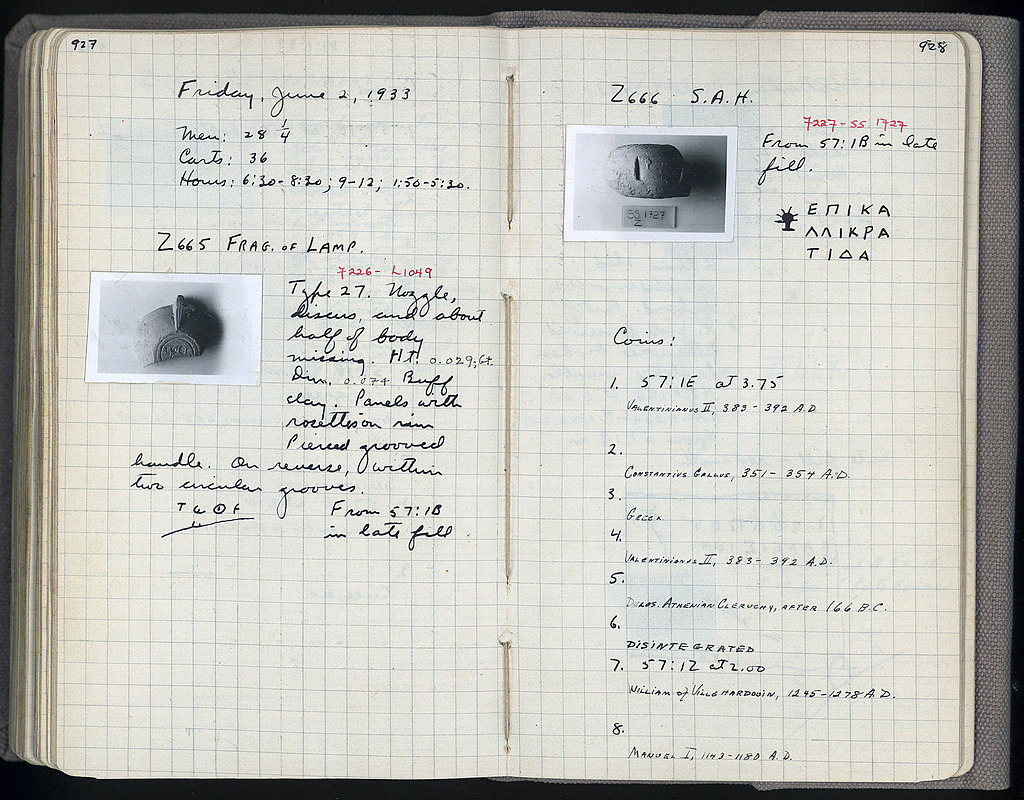 927
Friday, June 2, 1933
Men: 28 1/4
Carts: 36
Hours: 6:30-8:30; 9-12; 1:50-5:30.
Z665 FRAG. OF LAMP.
7226- L1049
Type 27. Nozzle,
discus, and about
half of body
missing. Ht. 0.029; Gt.
Dim. 0.074 Buff
clay. Panels with
rosettes on rim
Pierced grooved
handle. On reverse, within
two circular grooves.
From 57:1B
in late fill
928
Z666 S.A.H.
7227-SS 1727
From 57:1B in late
fill.
SS 1727
Z
ΕΠΙΚΑ
ΛΛΙΚΡΑ
ΤΙΔΑ
Coins:
1. 57:1E at 3.75
VALENTINIANUS II, 383-392 A.D.
2.
CONSTANTIUS GALLUS, 351-354 A.D.
3.
GREEK
4.
VALENTINIANUS II, 383-392 A.D.
5.
DELOS. ATHENIAN CLERUCHY, AFTER 166 B.C.
6.
DISINTEGRATED
7. 57:1Z at 2.00
WILLIAM of VILLEHARDOUIN, 1245-1278 A.D.
8.
MANUEL I, 1143-1180 A.D.